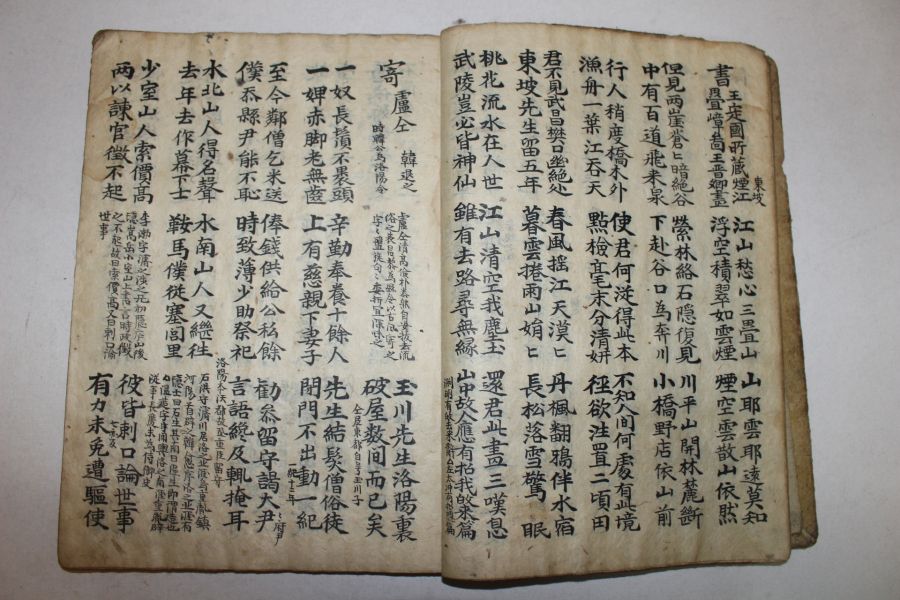 書王定國所藏煙江
疊嶂啚王晋卿畫
東坡
江山愁心三疊山
浮空積翠如雲煙
山耶雲耶遠莫知
煙空雲散山依然
但見兩崖蒼ヒ暗絶谷
中有百道飛來泉
縈林絡石隱復見
下赴谷口為奔川
川平山開林麓斷
小橋野店依山前
行人稍度橋木外
漁舟一葉江吞天
使君何從得此本
點檢毫末分清妍
不知人間何處有此境
徑欲注置二頃田
君不見武昌樊口幽絶處
東坡先生留五年
春風搖江天漠ヒ
暮雲捲雨山娟ヒ
丹楓翻鴉伴水宿
長松落雪驚 眠
桃花流水在人世
武陵豈必皆神仙
江山清空我塵土
雖有去路尋無緣
還君此畫三嘆息
山中故人應有招我的來篇
寄盧仝 韓退之
時韓公為洛陽令
玉川先生洛陽裏
破屋数間而已矣
仝居東都自号玉川子
一奴長鬚不裹頭
一婢赤脚老無齒
辛勤奉養十餘人
上有慈親下妻子
先生結髮憎俗徒
閉門不出動一紀
一紀十二年
至今鄰僧乞米送
僕忝縣尹能不恥
俸錢供給公私餘
時致薄少助祭祀
勸參留守謁大尹
言語纔及輒掩耳
水北山人得名聲
去年去作幕下士
水南山人又繼往
鞍馬僕從塞閭里
少室山人索價高
两以諫官徵不起
彼皆刺口論世事
有力未免遭驅使